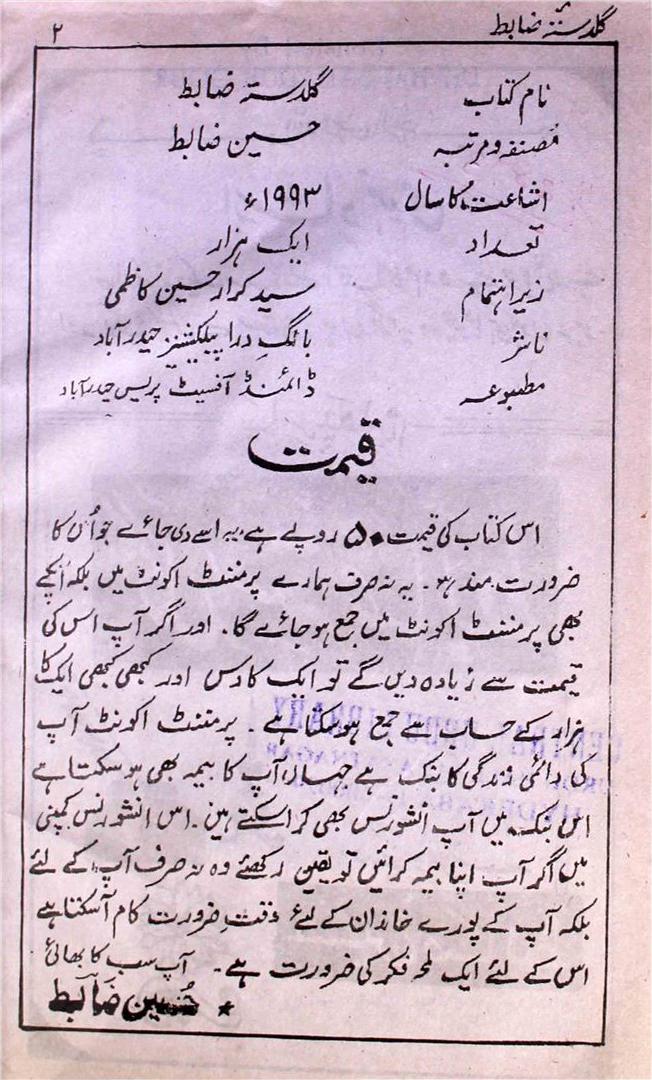 گلدستۂ ضابط ۲
نام کتاب گلدستۂ ضابط
مصنفہ و مرتبہ حسین ضابط
اشاعت کا سال ۱۹۹۳ء
تعداد ایک ہزار
زیر اہتمام سید کرار حسین کاظمی
ناشر بانگِ درا پبلکیشنز حیدرآباد
مطبوعہ ڈائمنڈ آفسیٹ پریس حیدرآباد
قیمت
اس کتاب کی قیمت ۵۰ روپے ہے یہ اسے دی جائے جو اُن کا
ضرورت مند ہو۔ یہ نہ صرف ہمارے پرمننٹ اکونٹ میں بلکہ آپکے
بھی پرمننٹ اکونٹ میں جمع ہو جائے گا۔ اور اگر آپ اس کی
قیمت سے زیادہ دیں گے تو ایک کا دس اور کبھی کبھی ایک کا
ہزار کے حساب سے جمع ہو سکتا ہے۔ پرمننٹ اکونٹ آپ
کی دائمی زندگی کا بنک ہے جہاں آپ کا بیمہ بھی ہو سکتا ہے
اس بنک میں آپ انشورنس بھی کرا سکتے ہیں۔ اس انشورنس کمپنی
میں اگر آپ اپنا بیمہ کرائیں تو یقین رکھئے وہ نہ صرف آپ کے لئے
بلکہ آپ کے پورے خاندان کے لئے وقتِ ضرورت کام آسکتا ہے
اس کے لئے ایک لمحہ فکر کی ضرورت ہے۔ آپ سب کا بھائی
* حسین ضابط